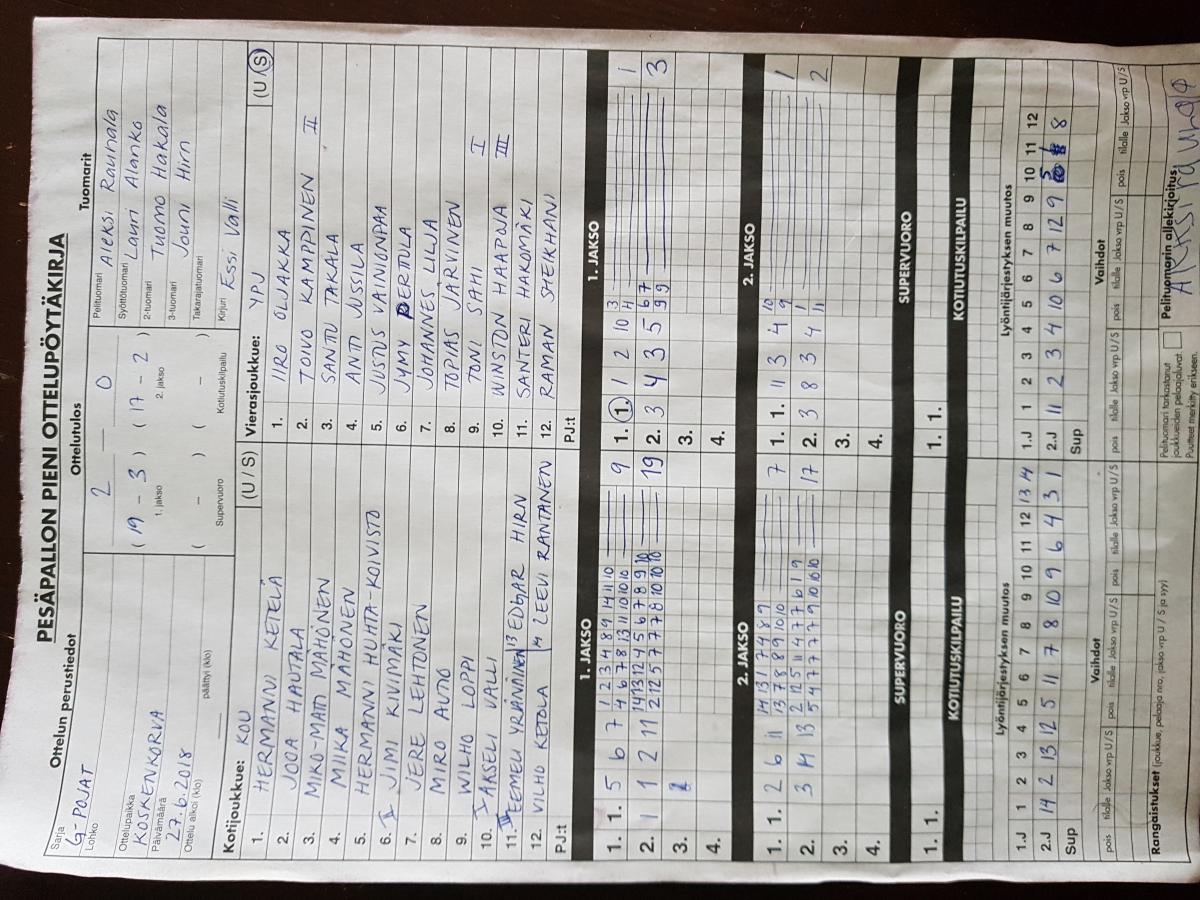 PESÄPALLON PIENI OTTELUPÖYTÄKIRJA
Ottelun perustiedot
Sarja
G-POJAT
Lohko
Ottelupaikka
KOSKENKORVA
Päivämäärä
27.6.2018
Ottelu alkoi (klo)
päättyi (klo)
Ottelutulos
2 — 0
( 19 – 3 ) ( 17 – 2 )
1. jakso 2. jakso
( – ) ( – )
Supervuoro Kotiutuskilpailu
Tuomarit
Pelituomari Aleksi Raunala
Syöttötuomari Lauri Alanko
2-tuomari Tuomo Hakala
3-tuomari Jouni Hirn
Takarajatuomari
Kirjuri Essi Valli
Kotijoukkue: KOU (U / S)
1. HERMANNI KETELÄ
2. JOOA HAUTALA
3. MIKO-MATI MÄHÖNEN
4. MIIKA MÄHÖNEN
5. HERMANNI HUHTA-KOIVISTO
6. II JIMI KIVIMÄKI
7. JERE LEHTONEN
8. MIRO AUTIO
9. WILHO LOPPI
10. I AKSELI VALLI
11. III EEMELI YRJÄNÄINEN 13 EDGAR HIRN
12. VILHO KETOLA 14 LEEVI RANTANEN
PJ:t
Vierasjoukkue: YPJ (U / S)
1. IIRO OLJAKKA
2. TOIVO KAMPPINEN II
3. SANTTU TAKALA
4. ANTI JUSSILA
5. JUSTUS VAINIONPÄÄ
6. JYMY PERTULA
7. JOHANNES LILJA
8. TOPIAS JÄRVINEN
9. TONI SAHI I
10. WINSTON HAAPOJA III
11. SANTERI HAKOMÄKI
12. RAMAN SHEIKHANI
PJ:t
1. JAKSO
1. 1. 5 6 7 1 2 3 4 8 9 14 11 10 9
4 6 7 8 13 11 10 10 10
2. 1 2 11 14 13 12 4 5 6 7 8 9 10 19
2 12 5 7 7 7 8 10 10 10
3.
4.
1. JAKSO
1. 1. 1 2 10 3 1
4
2. 3 4 3 5 6 7 3
9 9
3.
4.
2. JAKSO
1. 1. 2 6 11 14 13 1 7 4 8 9 7
13 7 8 8 9 10 10
2. 3 14 13 2 12 5 11 4 7 6 1 9 17
5 4 7 7 7 7 9 10 10 10
3.
4.
2. JAKSO
1. 1. 11 3 4 10 1
9
2. 3 8 3 4 1 2
11
3.
4.
SUPERVUORO
1. 1.
SUPERVUORO
1. 1.
KOTIUTUSKILPAILU
KOTIUTUSKILPAILU
Lyöntijärjestyksen muutos
1.J 1 2 3 4 5 6 7 8 9 10 11 12 13 14
2.J 14 2 13 12 5 11 7 8 10 9 6 4 3 1
Sup
Lyöntijärjestyksen muutos
1.J 1 2 3 4 5 6 7 8 9 10 11 12
2.J 11 2 3 4 10 6 7 12 9 5 1 8
Sup
Vaihdot
pois tilalle Jakso vrp U/S pois tilalle Jakso vrp U/S pois tilalle Jakso vrp U/S
Vaihdot
pois tilalle Jakso vrp U/S pois tilalle Jakso vrp U/S pois tilalle Jakso vrp U/S
Rangaistukset (joukkue, pelaaja nro, jakso vrp U / S ja syy)
Pelituomari tarkastanut
joukkueiden pelaajaluvat.
Puutteet merkitty erikseen.
Pelituomarin allekirjoitus